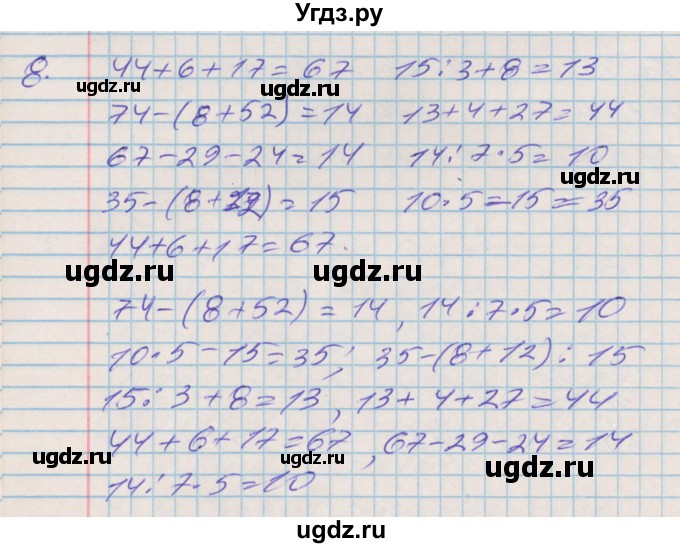 Угдз.ру
8. 44+6+17=67 15:3+8=13
ugdz.ru ugdz.ru
74-(8+52)=14 13+4+27=44
ugdz.ru
67-29-24=14 14:7·5=10
ugdz.ru
35-(8+12)=15 10·5=15=35
44+6+17=67.
ugdz.ru ugdz.ru
74-(8+52)=14, 14:7·5=10
10·5-15=35; 35-(8+12): 15
15:3+8=13, 13+4+27=44
44+6+17=67, 67-29-24=14
ugdz.ru ugdz.ru
14:7·5=10
ugdz.ru